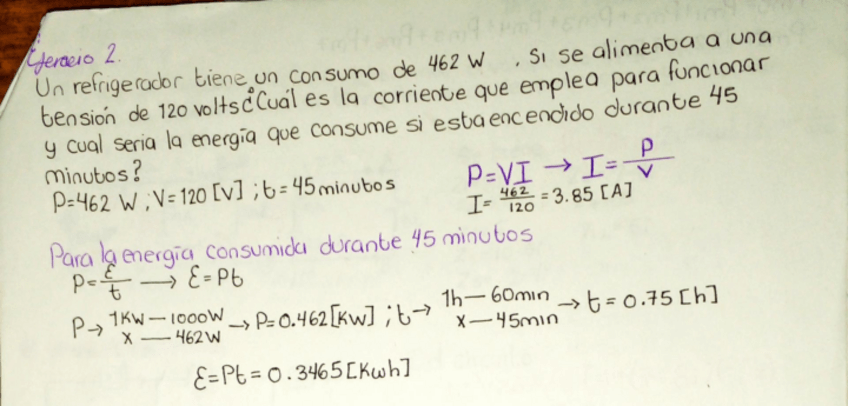 Ejercicio 2.
Un refrigerador tiene un consumo de 462 W , Si se alimenta a una
tensión de 120 volts ¿Cuál es la corriente que emplea para funcionar
y cual seria la energía que consume si esta encendido durante 45
minutos?
P=462 W ; V=120 [V] ; t=45 minutos
P=VI → I= P/V
I= 462/120 = 3.85 [A]
Para la energía consumida durante 45 minutos
P= ε/t → ε=Pt
P→ 1KW — 1000W → P=0.462[KW] ; t→ 1h — 60min → t=0.75 [h]
x — 462W x — 45min
ε=Pt=0.3465[Kwh]